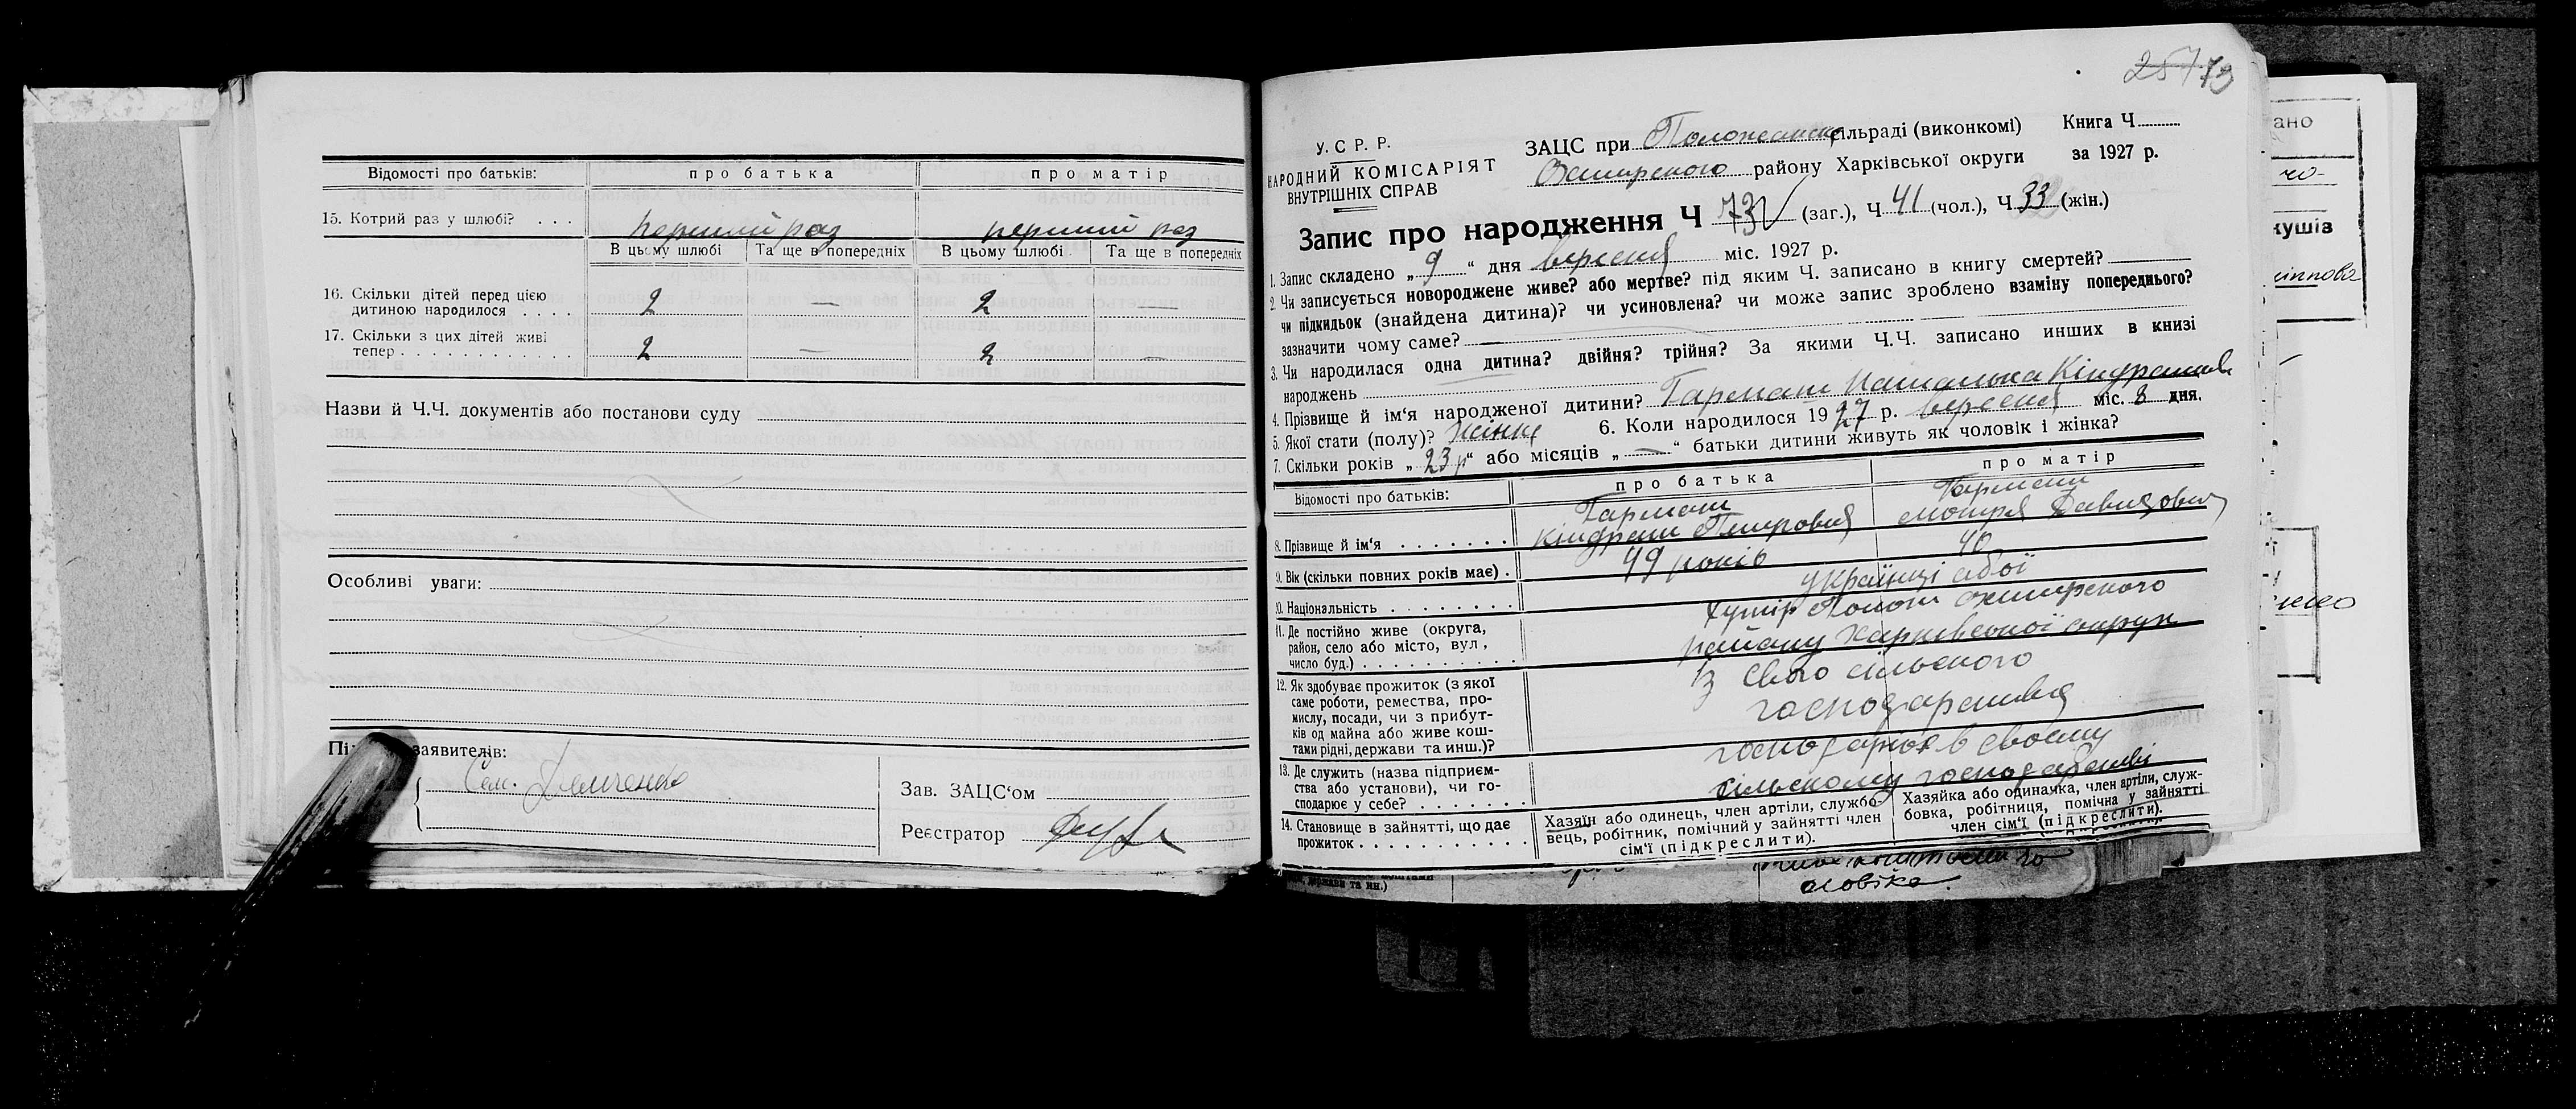 Відомості про батьків: про батька про матір
15. Котрий раз у шлюбі? . . . перший раз перший раз
В цьому шлюбі Та ще в попередніх В цьому шлюбі Та ще в попередніх
16. Скільки дітей перед цією
дитиною народилося . . . . 2 — 2 —
17. Скільки з цих дітей живі
тепер . . . . . . . . . . . . 2 — 2 —
Назви й Ч.Ч. документів або постанови суду
Особливі уваги:
заявителів:
Зав. ЗАЦС‘ом
Реєстратор
257 73
У.С Р. Р.
НАРОДНИЙ КОМІСАРІЯТ
ВНУТРІШНІХ СПРАВ
ЗАЦС при сільраді (виконкомі) Книга Ч.
району Харківської округи за 1927 р.
Запис про народження Ч 73 (заг.), Ч 41 (чол.), Ч 33 (жін.)
1. Запис складено „ 9 “ дня вересня міс. 1927 р.
2. Чи записується новороджене живе? або мертве? під яким Ч. записано в книгу смертей?
чи підкидьок (знайдена дитина)? чи усиновлена? чи може запис зроблено взаміну попереднього?
зазначити чому саме? —
3. Чи народилася одна дитина? двійня? трійня? За якими Ч.Ч. записано инших в книзі
народжень
4. Прізвище й ім‘я народженої дитини? Гармаш Наталька
5. Якої стати (полу)? жінка 6. Коли народилося 1927 р. вересня міс. 8 дня.
7. Скільки років „ 23 р “ або місяців „ — “ батьки дитини живуть як чоловік і жінка?
Відомості про батьків: про батька про матір
8. Прізвище й ім‘я . . . . . . . Гармаш Кіндрат Петрович Гармаш Мотря Давидовна
9. Вік (скільки повних років має) . 49 років 40
10. Національність . . . . . . . . українці обої
11. Де постійно живе (округа,
район, село або місто, вул.,
число буд.) . . . . . . . . . . хутір
району Харківської округи
12. Як здобуває прожиток (з якої
саме роботи, ремества, про-
мислу, посади, чи з прибут-
ків од майна або живе кош-
тами рідні, держави та инш.)?
Із свого сільського
господарства
13. Де служить (назва підприєм-
ства або установи), чи го-
сподарює у себе? . . . . . . .
господарює в своєму
сільському господарстві
14. Становище в зайнятті, що дає
прожиток . . . . . . . . . . .
Хазяїн або одинець, член артіли, службо-
вець, робітник, помічний у зайнятті член
сім‘ї (підкреслити).
Хазяйка або одиначка, член артіли, служ-
бовка, робітниця, помічна у зайнятті
член сім‘ї (підкреслити).
держави та ин.)